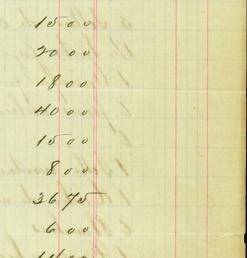 15 00
20 00
18 00
40 00
15 00
8 00
36 75
6 00